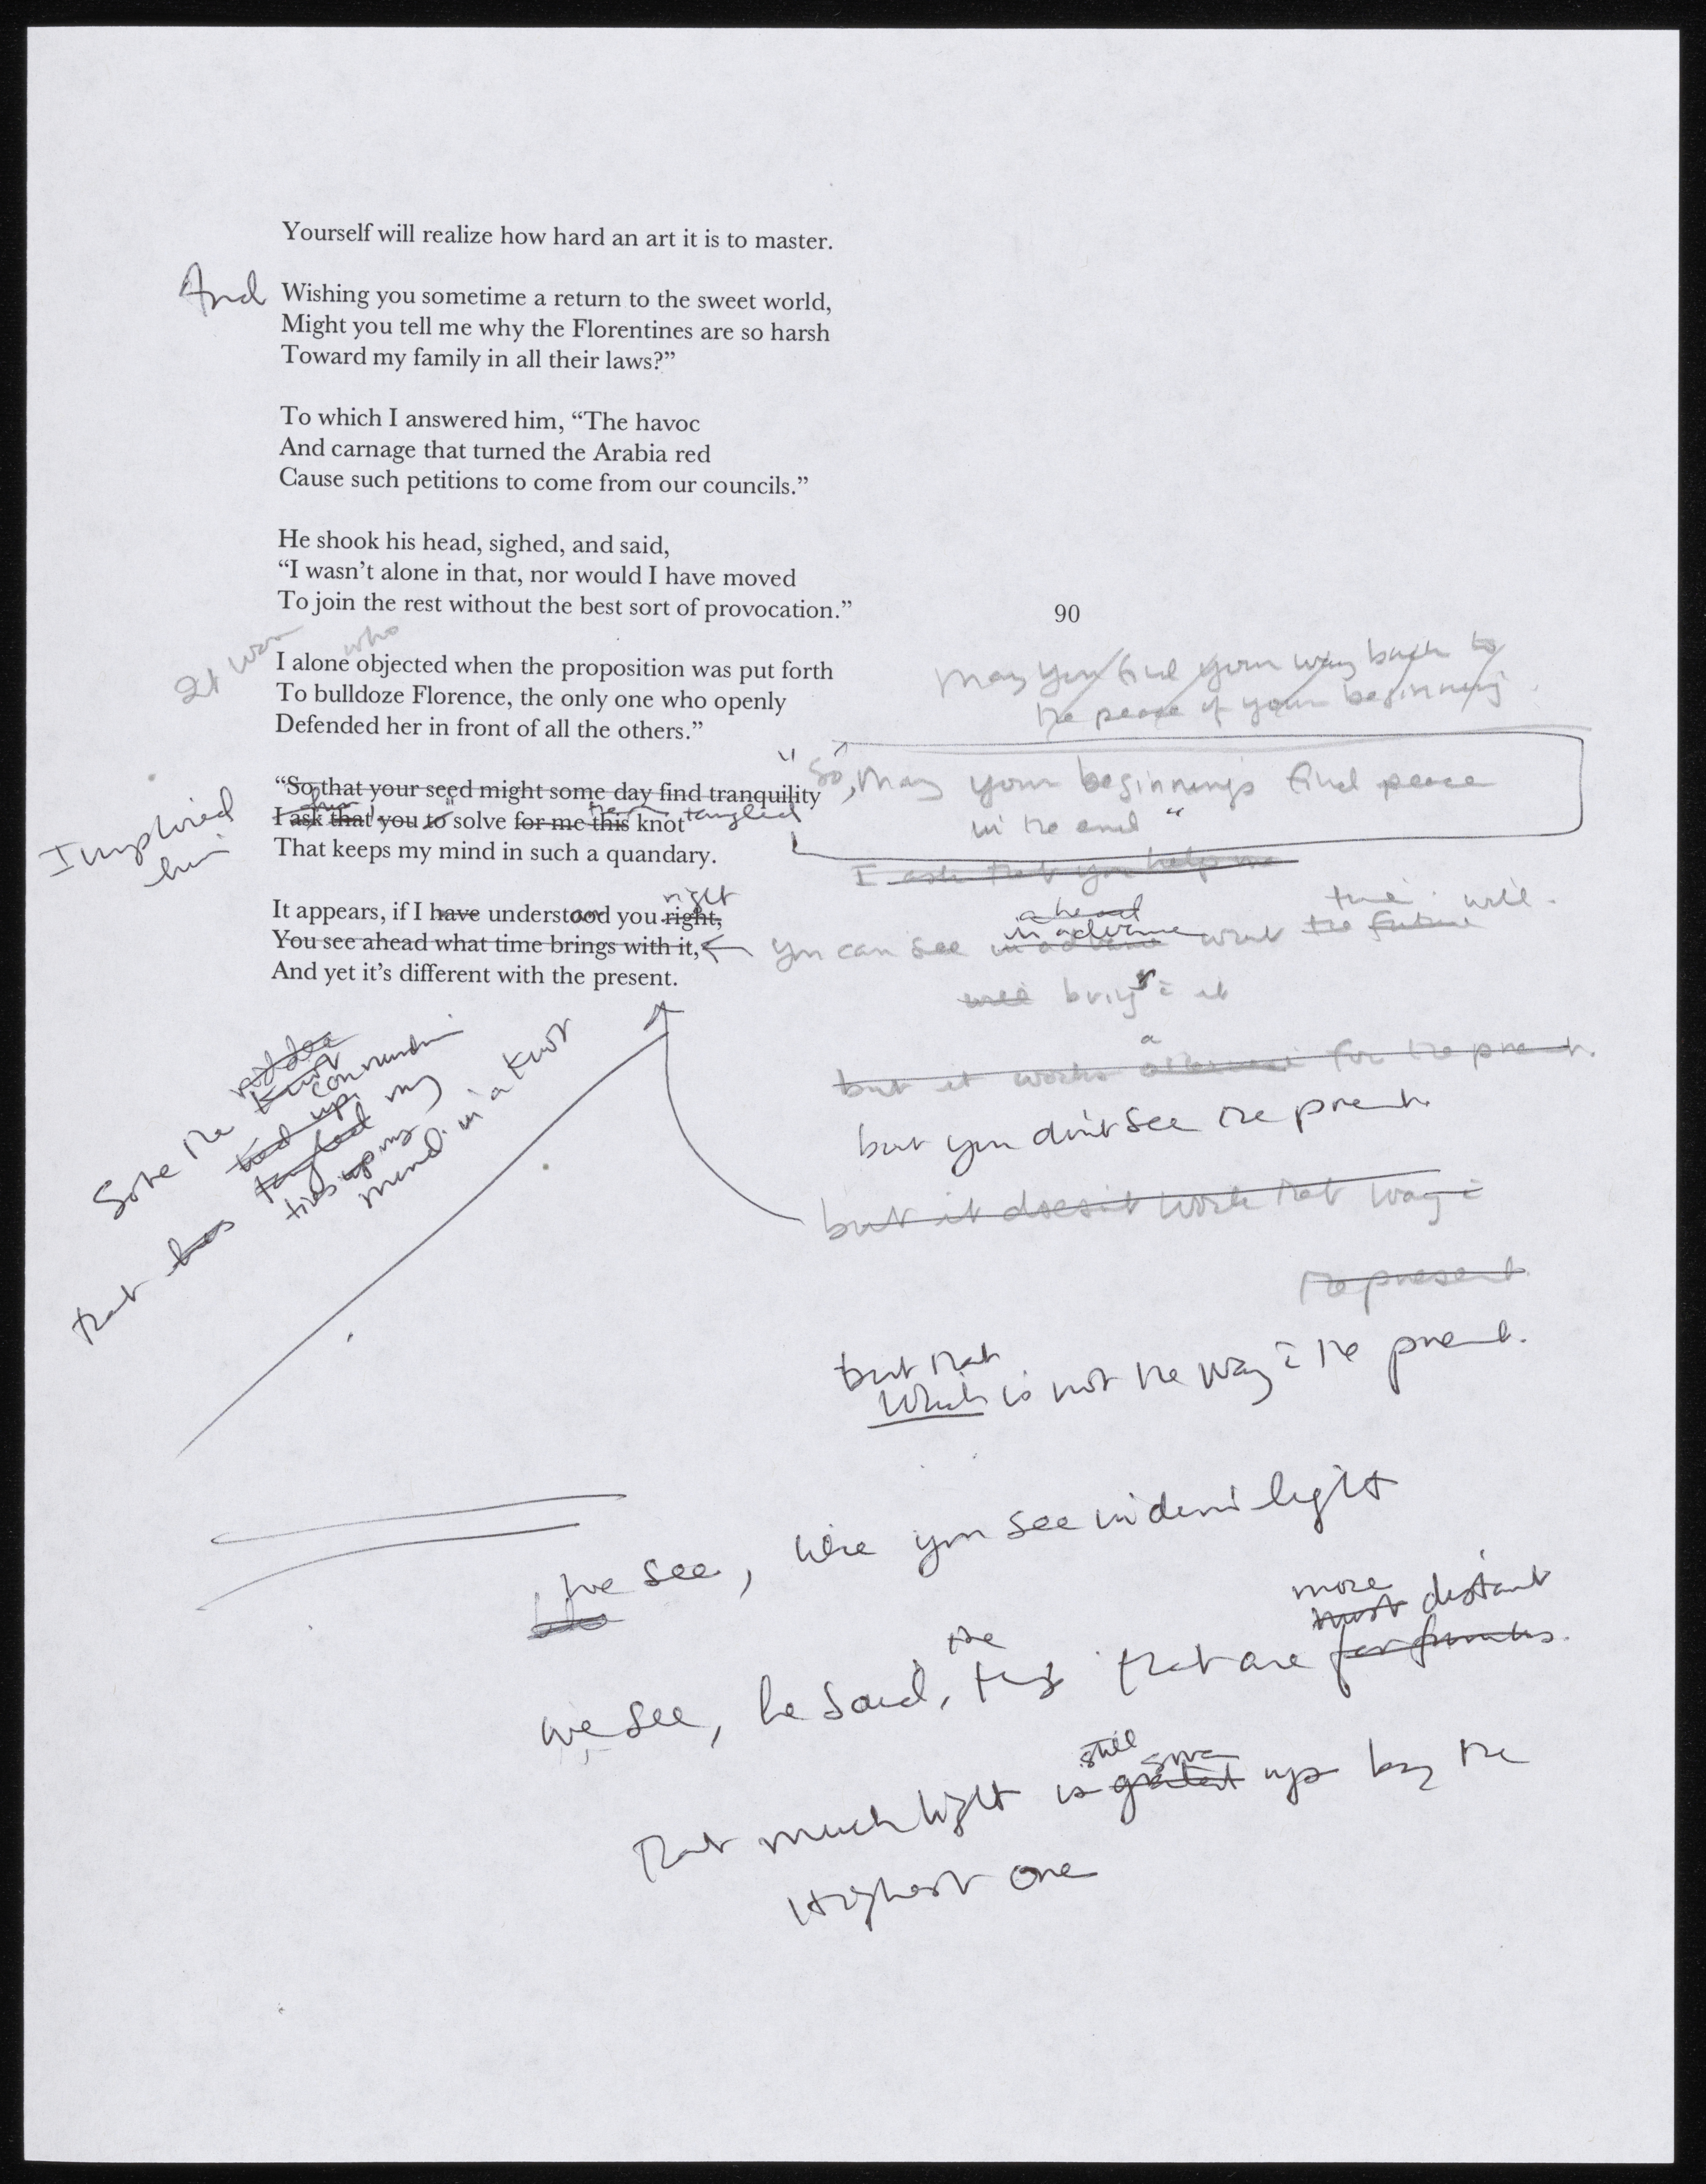 Yourself will realize how hard an art it is to master.
And
Wishing you sometime a return to the sweet world,
Might you tell me why the Florentines are so harsh
Toward my family in all their laws?”
To which I answered him, “The havoc
And carnage that turned the Arabia red
Cause such petitions to come from our councils.”
He shook his head, sighed, and said,
“I wasn’t alone in that, nor would I have moved
To join the rest without the best sort of provocation.”
90
It was who
I alone objected when the proposition was put forth
To bulldoze Florence, the only one who openly
Defended her in front of all the others.”
May you find your way back to
the peace of your beginning
“So that your seed might some day find tranquility
I ask that you to solve for me this knot
tangled
That keeps my mind in such a quandary.
I implored
him
"So, may your beginnings find peace
in the end"
I ask that you help me
It appears, if I have understood you right,
right
You see ahead what time brings with it,
And yet it’s different with the present.
ahead
in advance
time will
you can see in advance what the future
will brings it
but it works for the present.
but you don't see the present.
but it doesn't work that way
the present
but that
Which is not the way the present.
Solve the riddle
knot
conundrum
that has tied up
tangled my
ties up my
mind in a knot
We see, like you see in dim light
more
most distant
we see, he said, the things that are
still
That much light is given up by the
Highest one